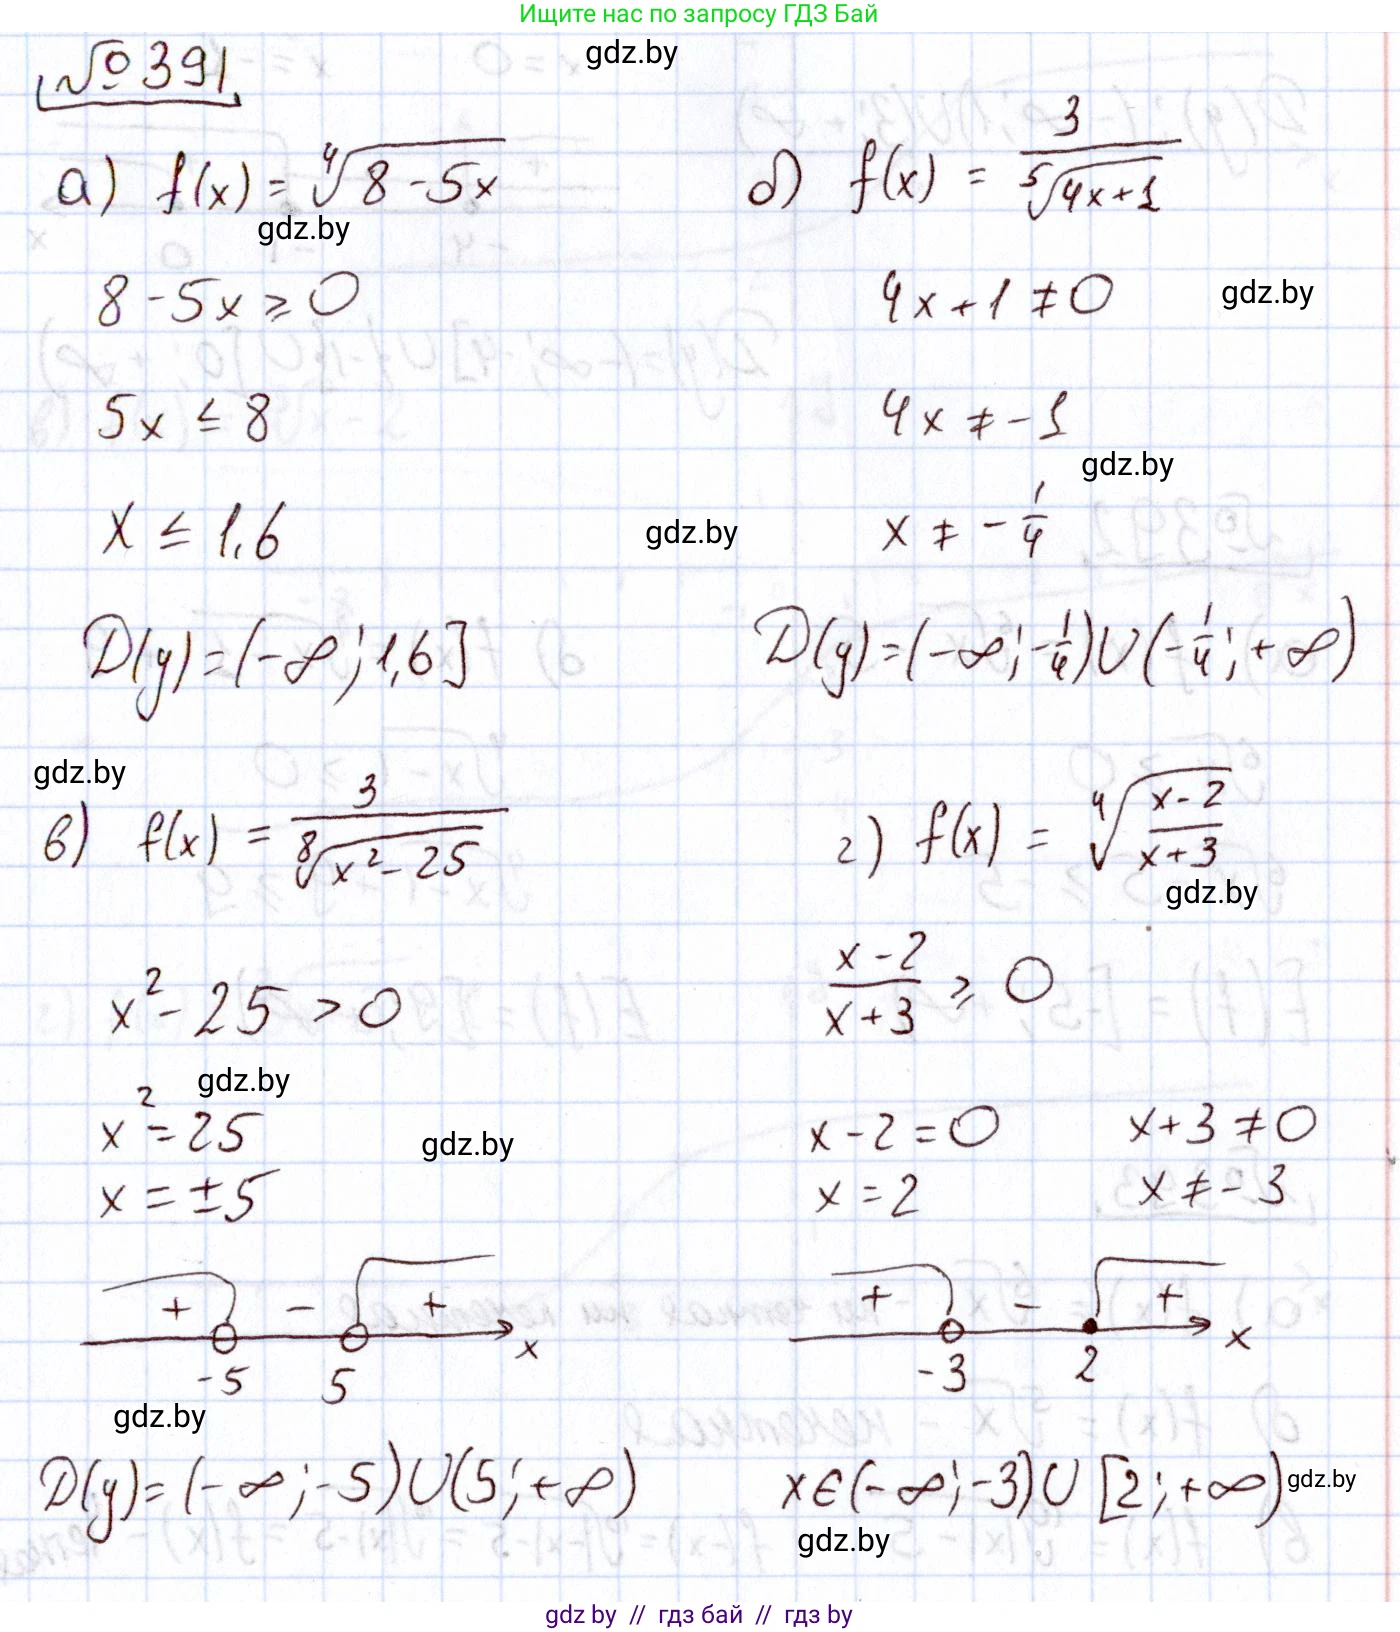 Ищите нас по запросу ГДЗ Бай
gdz.by
№391
а) f(x) = ⁴√(8 - 5x)
gdz.by
8 - 5x ≥ 0
5x ≤ 8
x ≤ 1,6
D(y) = (-∞; 1,6]
б) f(x) = 3/⁵√(4x+1)
4x + 1 ≠ 0
gdz.by
4x ≠ -1
gdz.by
gdz.by
x ≠ -1/4
D(y) = (-∞; -1/4) ∪ (-1/4; +∞)
gdz.by
в) f(x) = 3/⁸√(x² - 25)
x² - 25 > 0
gdz.by
x² = 25
gdz.by
x = ±5
+ - + x
-5 5
gdz.by
D(y) = (-∞; -5) ∪ (5; +∞)
г) f(x) = ⁴√((x-2)/(x+3))
gdz.by
(x-2)/(x+3) ≥ 0
x - 2 = 0 x + 3 ≠ 0
x = 2 x ≠ -3
+ - + x
-3 2
x∈(-∞; -3) ∪ [2; +∞)
gdz.by
gdz.by
gdz by // гдз бай // гдз by